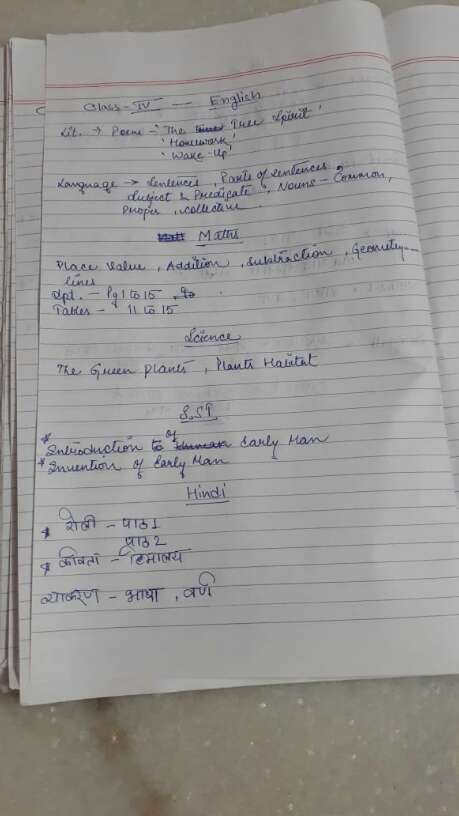 Class - IV — English
Lit. → Poem - 'The Tree Spirit'
'Homework'
'Wake-Up'
Language → Sentences, Parts of sentences
Subject & Predicate, Nouns - Common,
Proper, collective
Maths
Place Value, Addition, Subtraction, Geometry -
lines
Pg 1 to 15
Tables - 11 to 15
Science
The Green plants, Plants Habitat
S.ST
* Introduction of Early Man
* Invention of Early Man
Hindi
* - पाठ 1
पाठ 2
* कविता - हिमालय
व्याकरण - भाषा, वर्ण